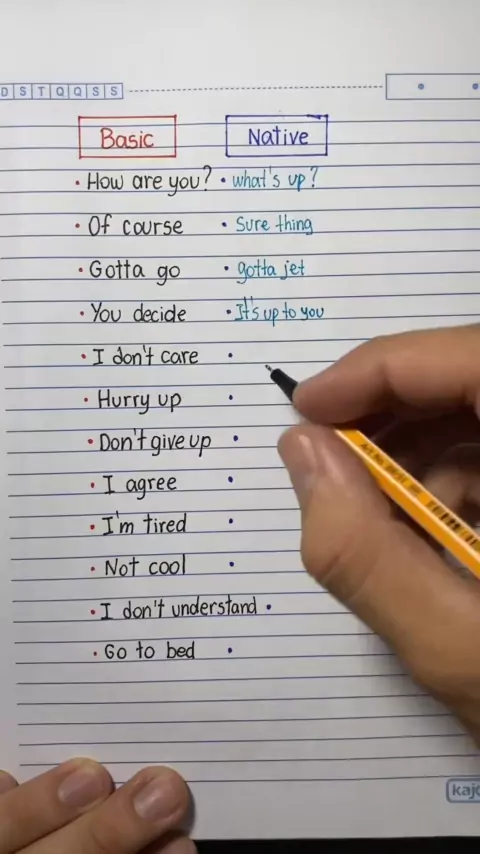 D S T Q Q S S
Basic Native
How are you? what's up?
Of course Sure thing
Gotta go gotta jet
You decide It's up to you
I don't care
Hurry up
Don't give up
I agree
I'm tired
Not cool
I don't understand
Go to bed